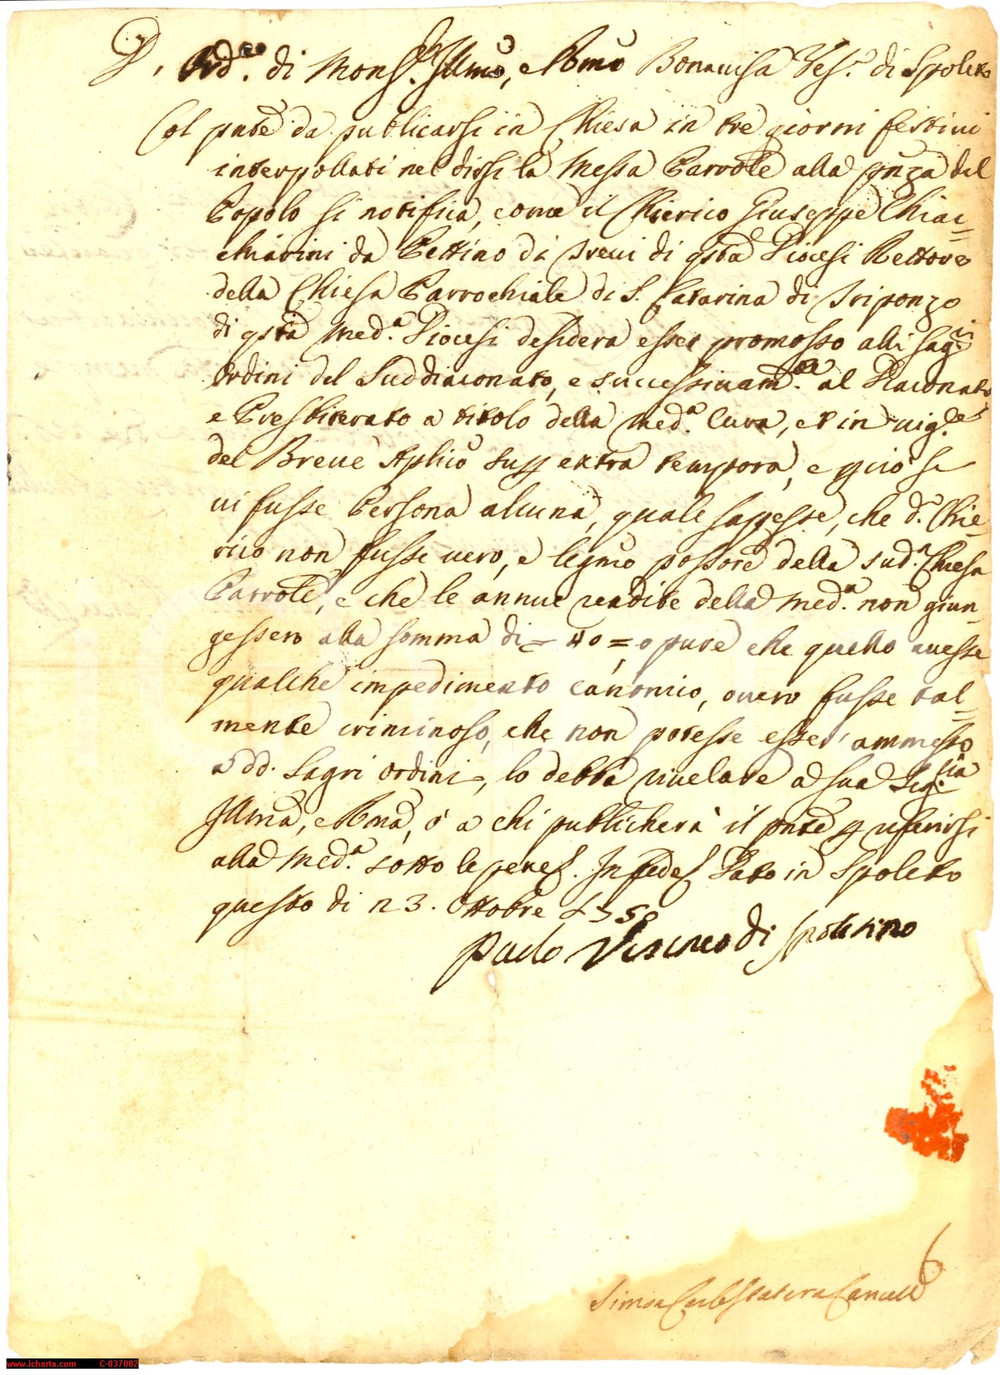 D'Ord.ne di Mons.r Illmo, e Rmo Bonauisa Ves.o di Spoleto
Col pnte da publicarsi in Chiesa in tre giorni festiui
interpollati nel dirsi la Messa Parrōle alla pnza del
Popolo si notifica, come il Chierico Giuseppe Chiac=
chiarini da Pettino di Treui di qsta Diocesi Rettore
della Chiesa Parrochiale di S. Catarina di Triponzo
di qsta Med.a Diocesi desidera esser promosso alli Sagri
Ordini del Suddiaconato, e successiuam.te al Diaconato
e Presbiterato a titolo della Med.a Cura, et in uig.e
del Breue Aplico super extra tempora, e perciò se
ui fusse Persona alcuna, quale sapesse, che d.o Chie=
rico non fusse uero, e legmo possore della sud.a Chiesa
Parrōle, e che le annue rendite della Med.a non giun=
gessero alla somma di = 40 = o pure che quello auesse
qualche impedimento canonico, ouero fusse tal=
mente criminoso, che non potesse esser ammesso
a dd. Sagri Ordini, lo debba riuelare a Sua Sig.ria
Illma, e Rma, ò a chi publicherà il pnte per riferirsi
alla Med.a sotto le pene &. In fede & Dato in Spoleto
questo di 23. Ottobre 175
Paolo di Spoletino
Simon Cancell
www.icharta.com C-037082